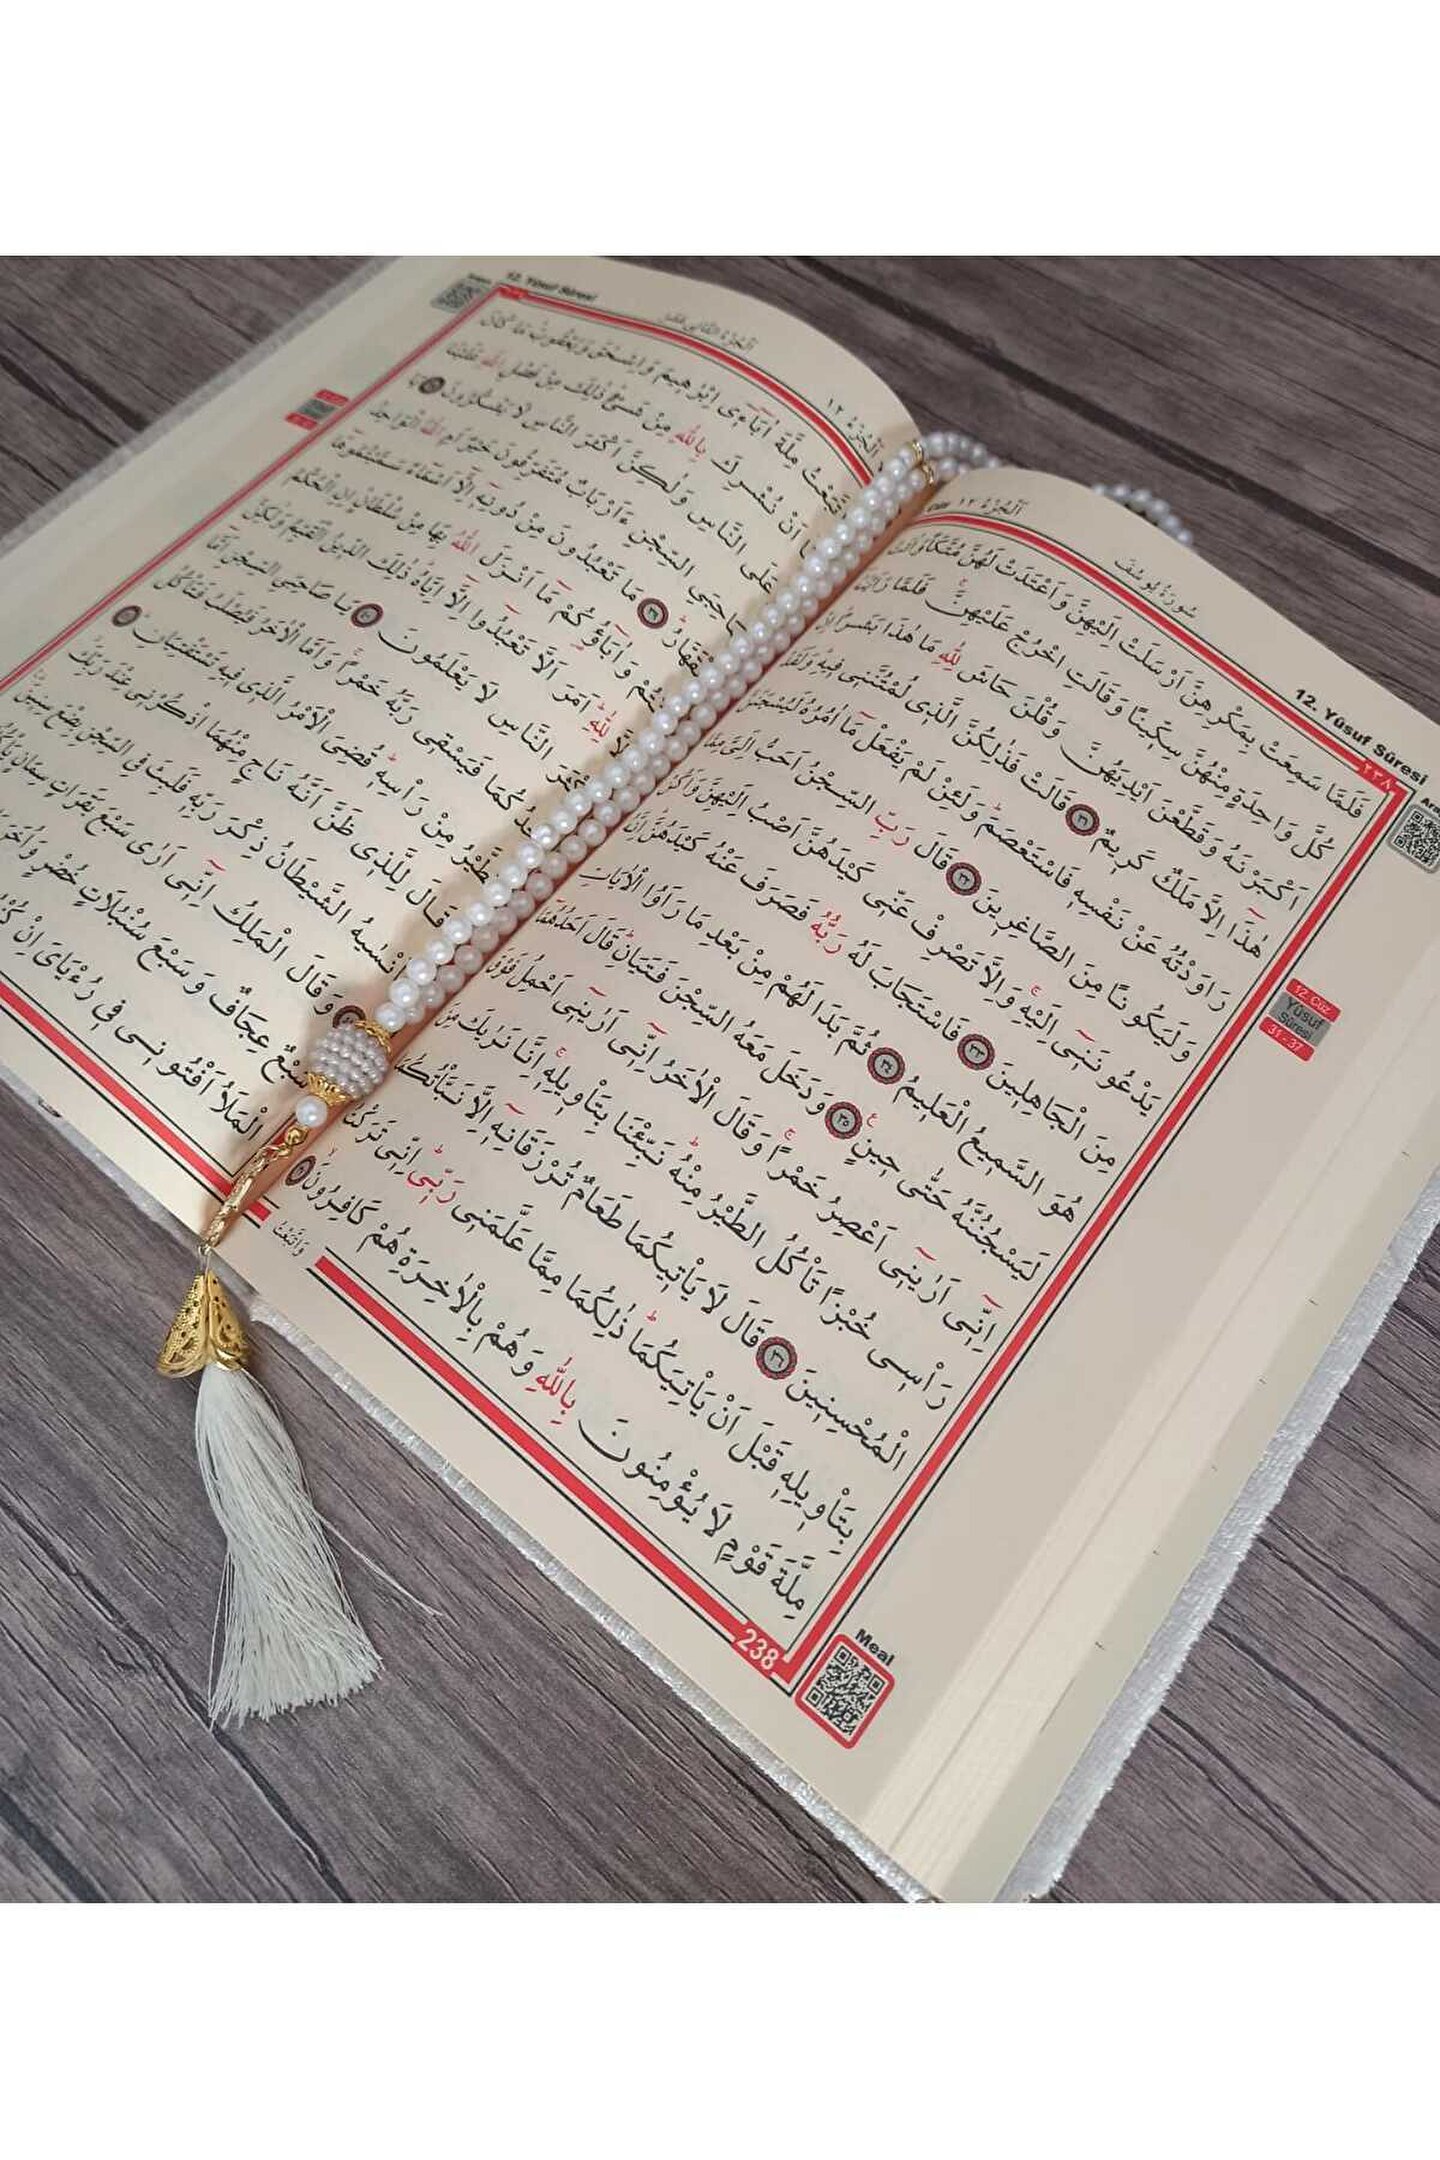 سُورَةُ يُوسُفَ
اَلْجُزْءُ ١٢
12. Yûsuf Sûresi
٢٣٨
فَلَمَّا سَمِعَتْ بِمَكْرِهِنَّ اَرْسَلَتْ اِلَيْهِنَّ وَاَعْتَدَتْ لَهُنَّ مُتَّكَـًٔا وَاٰتَتْ
كُلَّ وَاحِدَةٍ مِنْهُنَّ سِكّ۪ينًا وَقَالَتِ اخْرُجْ عَلَيْهِنَّۚ فَلَمَّا رَاَيْنَهُٓ
اَكْبَرْنَهُ وَقَطَّعْنَ اَيْدِيَهُنَّ وَقُلْنَ حَاشَ لِلّٰهِ مَا هٰذَا بَشَرًاۜ اِنْ
هٰذَٓا اِلَّا مَلَكٌ كَر۪يمٌ ٣١ قَالَتْ فَذٰلِكُنَّ الَّذ۪ي لُمْتُنَّن۪ي ف۪يهِۜ وَلَقَدْ
رَاوَدْتُهُ عَنْ نَفْسِه۪ فَاسْتَعْصَمَۜ وَلَئِنْ لَمْ يَفْعَلْ مَٓا اٰمُرُهُ لَيُسْجَنَنَّ
وَلَيَكُونًا مِنَ الصَّاغِر۪ينَ ٣٢ قَالَ رَبِّ السِّجْنُ اَحَبُّ اِلَيَّ مِمَّا
يَدْعُونَن۪ٓي اِلَيْهِۚ وَاِلَّا تَصْرِفْ عَنّ۪ي كَيْدَهُنَّ اَصْبُ اِلَيْهِنَّ وَاَكُنْ
مِنَ الْجَاهِل۪ينَ ٣٣ فَاسْتَجَابَ لَهُ رَبُّهُ فَصَرَفَ عَنْهُ كَيْدَهُنَّۜ اِنَّهُ
هُوَ السَّم۪يعُ الْعَل۪يمُ ٣٤ ثُمَّ بَدَا لَهُمْ مِنْ بَعْدِ مَا رَاَوُا الْاٰيَاتِ
لَيَسْجُنُنَّهُ حَتّٰى ح۪ينٍ۟ ٣٥ وَدَخَلَ مَعَهُ السِّجْنَ فَتَيَانِۜ قَالَ اَحَدُهُمَٓا
اِنّ۪ٓي اَرٰين۪ٓي اَعْصِرُ خَمْرًاۚ وَقَالَ الْاٰخَرُ اِنّ۪ٓي اَرٰين۪ٓي اَحْمِلُ فَوْقَ
رَاْس۪ي خُبْزًا تَاْكُلُ الطَّيْرُ مِنْهُۜ نَبِّئْنَا بِتَاْو۪يلِه۪ۚ اِنَّا نَرٰيكَ مِنَ
الْمُحْسِن۪ينَ ٣٦ قَالَ لَا يَاْت۪يكُمَا طَعَامٌ تُرْزَقَانِه۪ٓ اِلَّا نَبَّاْتُكُمَا
بِتَاْو۪يلِه۪ قَبْلَ اَنْ يَاْتِيَكُمَاۜ ذٰلِكُمَا مِمَّا عَلَّمَن۪ي رَبّ۪يۜ اِنّ۪ي تَرَكْتُ
مِلَّةَ قَوْمٍ لَا يُؤْمِنُونَ بِاللّٰهِ وَهُمْ بِالْاٰخِرَةِ هُمْ كَافِرُونَۙ
وَاتَّبَعْتُ
238
Meal
12. Cüz
Yûsuf
Sûresi
31 - 37
12. Yûsuf Sûresi
اَلْجُزْءُ ١٢
وَاتَّبَعْتُ مِلَّةَ اٰبَٓاء۪ٓي اِبْرٰه۪يمَ وَاِسْحٰقَ وَيَعْقُوبَۜ مَا كَانَ
اَنْ نُشْرِكَ بِاللّٰهِ مِنْ شَيْءٍۜ ذٰلِكَ مِنْ فَضْلِ اللّٰهِ عَلَيْنَا
عَلَى النَّاسِ وَلٰكِنَّ اَكْثَرَ النَّاسِ لَا يَشْكُرُونَ يَا
السِّجْنِ ءَاَرْبَابٌ مُتَفَرِّقُونَ خَيْرٌ اَمِ اللّٰهُ الْوَاحِدُ
٣٩ مَا تَعْبُدُونَ مِنْ دُونِه۪ٓ اِلَّٓا اَسْمَٓاءً سَمَّيْتُمُوهَٓا
وَاٰبَٓاؤُ۬كُمْ مَٓا اَنْزَلَ اللّٰهُ بِهَا مِنْ سُلْطَانٍۜ اِنِ الْحُكْمُ
لِلّٰهِۜ اَمَرَ اَلَّا تَعْبُدُٓوا اِلَّٓا اِيَّاهُۜ ذٰلِكَ الدّ۪ينُ الْقَيِّمُ وَلٰكِنَّ
النَّاسِ لَا يَعْلَمُونَ ٤٠ يَا صَاحِبَيِ السِّجْنِ اَمَّٓا
فَيَسْق۪ي رَبَّهُ خَمْرًاۚ وَاَمَّا الْاٰخَرُ فَيُصْلَبُ فَتَاْكُلُ
مِنْ رَاْسِه۪ۜ قُضِيَ الْاَمْرُ الَّذ۪ي ف۪يهِ تَسْتَفْتِيَانِۜ
وَقَالَ لِلَّذ۪ي ظَنَّ اَنَّهُ نَاجٍ مِنْهُمَا اذْكُرْن۪ي عِنْدَ رَبِّكَۘ
الشَّيْطَانُ ذِكْرَ رَبِّه۪ فَلَبِثَ فِي السِّجْنِ بِضْعَ سِن۪ينَ۟
وَقَالَ الْمَلِكُ اِنّ۪ٓي اَرٰى سَبْعَ بَقَرَاتٍ سِمَانٍ
سَبْعٌ عِجَافٌ وَسَبْعَ سُنْبُلَاتٍ خُضْرٍ وَاُخَرَ
الْمَلَاُ اَفْتُون۪ي ف۪ي رُءْيَايَ اِنْ